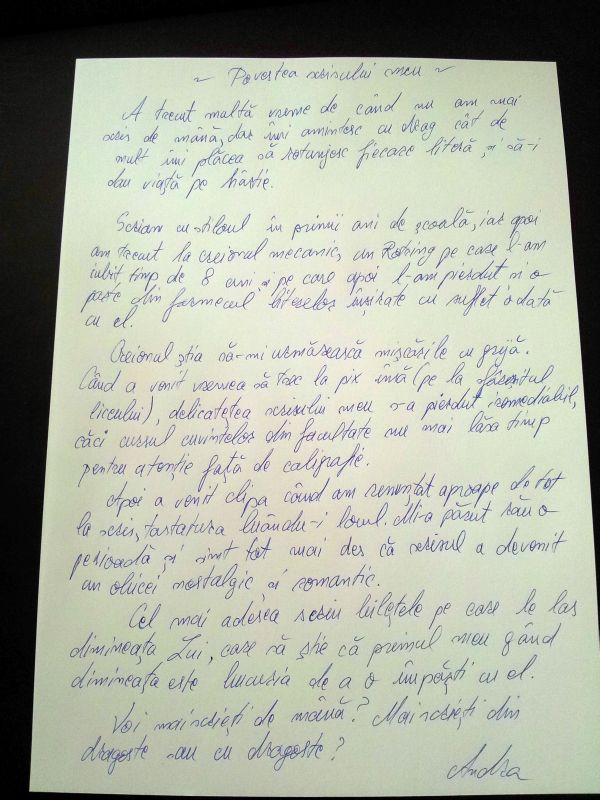 ~ Povestea scrisului meu ~
A trecut multă vreme de când nu am mai
scris de mână, dar îmi amintesc cu drag cât de
mult îmi plăcea să rotunjesc fiecare literă, și să-i
dau viață pe hârtie.
Scriam cu stiloul în primii ani de școală, iar apoi
am trecut la creionul mecanic, un Rotring pe care l-am
iubit timp de 8 ani și pe care apoi l-am pierdut și o
parte din farmecul literelor înșirate cu suflet odată
cu el.
Creionul știa să-mi urmărească mișcările cu grijă.
Când a venit vremea să trec la pix însă (pe la sfârșitul
liceului), delicatețea scrisului meu s-a pierdut iremediabil,
căci cursul cuvintelor din facultate nu mai lăsa timp
pentru atenție față de caligrafie.
Apoi a venit clipa când am renunțat aproape de tot
la scris, tastatura luându-i locul. Mi-a părut rău o
perioadă și simt tot mai des că scrisul a devenit
un obicei nostalgic și romantic.
Cel mai adesea scriu bilețele pe care le las
dimineața Lui, care să știe că primul meu gând
dimineața este bucuria de a o împărți cu el.
Voi mai scrieți de mână? Mai scrieți din
dragoste sau cu dragoste?
Andra